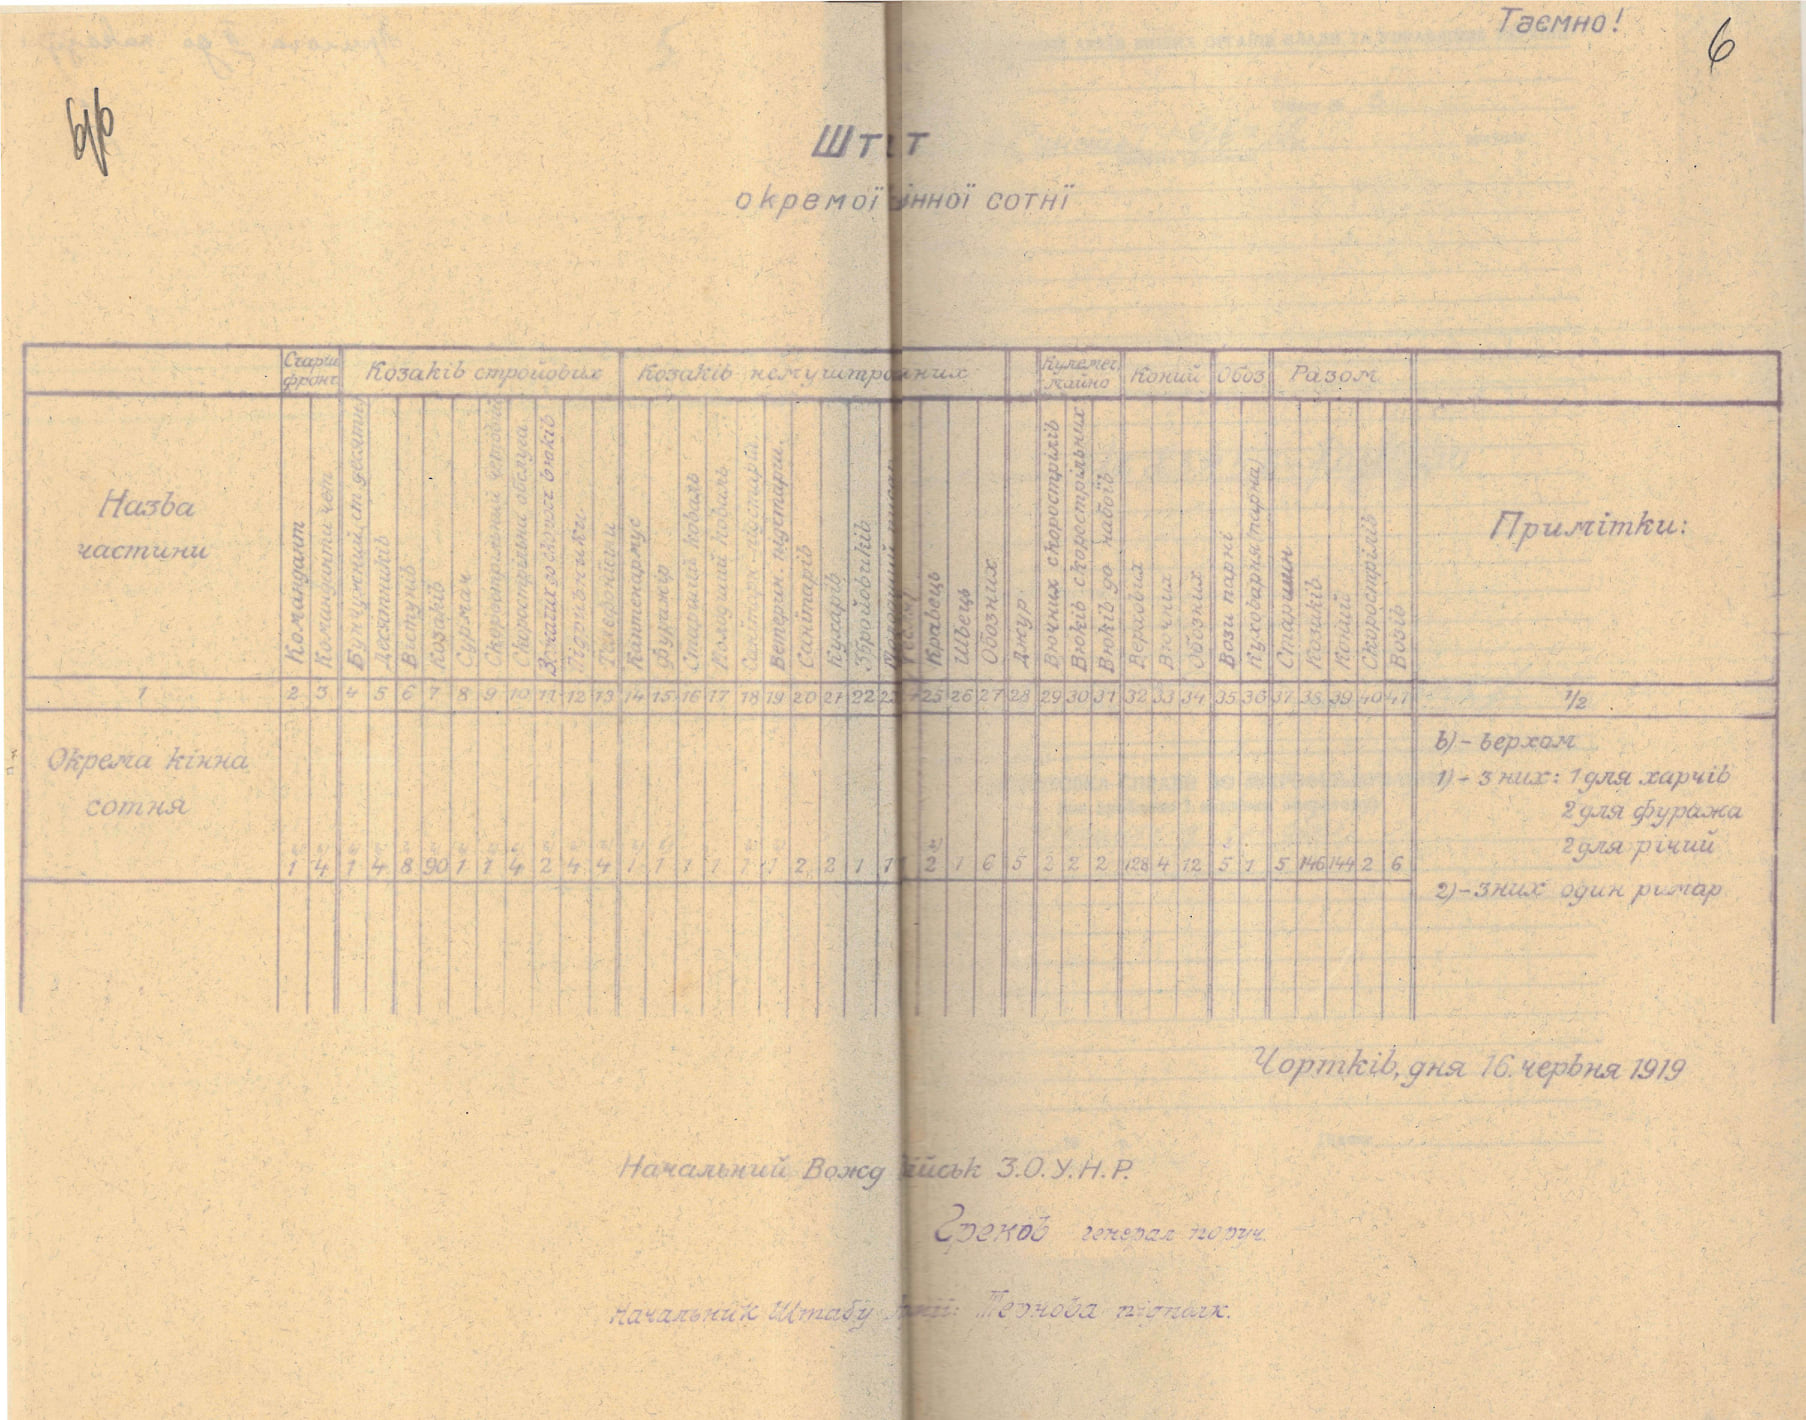 Таємно!
6
окремої інної сотні
Старш. Козаків стройових Козаків немуштрайних Кулемет. Коний Обоз Разом
фронт. майно
Назва
частини
Командант
Команданти чет
Десятників
Вистунів
Козаків
Сурмач
Скорострільна обслуга
Підручники
Телефоніси
Каптенармус
Фуражір
Старший коваль
Молодший коваль
Санітарів
Кухарів
Збройовиків
Кравець
Швець
Обозних
Джур
Вючних скорострілів
Вюків скорострільних
Вюків до набоїв
Верхових
Вючних
Обозних
Вози парні
Куховарня парна
Старшин
Козаків
Коний
Скорострілів
Возів
Примітки:
1 2 3 4 5 6 7 8 9 10 11 12 13 14 15 16 17 18 19 20 21 22 23 25 26 27 28 29 30 31 32 33 34 35 36 37 38 39 40 41 1/2
Окрема кінна
сотня
1 4 1 4 8 90 1 1 4 2 4 4 1 1 1 1 1 1 2 2 1 1 2 1 6 5 2 2 2 128 4 12 5 1 5 146 144 2 6
в) – верхом
1) – з них: 1 для харчів
2 для фуража
2 для річий
2) – з них один римар
Чортків, дня 16. червня 1919
Начальний Вожд ійськ З.О.У.Н.Р.
Греков генерал поруч.
Начальник Штабу Тернова підполк.